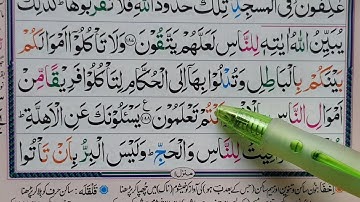 عٰكِفُوْنَ فِی الْمَسٰجِدِ ؕ تِلْكَ حُدُوْدُ اللّٰهِ فَلَا تَقْرَبُوْهَا ؕ كَذٰلِكَ
یُبَیِّنُ اللّٰهُ اٰیٰتِهٖ لِلنَّاسِ لَعَلَّهُمْ یَتَّقُوْنَ ۝۱۸۷ وَلَا تَاْكُلُوْۤا اَمْوَالَكُمْ
بَیْنَكُمْ بِالْبَاطِلِ وَتُدْلُوْا بِهَاۤ اِلَی الْحُكَّامِ لِتَاْكُلُوْا فَرِیْقًا مِّنْ
اَمْوَالِ النَّاسِ اَنْتُمْ تَعْلَمُوْنَ ۝۱۸۸ یَسْـَٔلُوْنَكَ عَنِ الْاَهِلَّةِ ؕ
لِلنَّاسِ وَالْحَجِّ ؕ وَلَیْسَ الْبِرُّ بِاَنْ تَاْتُوا